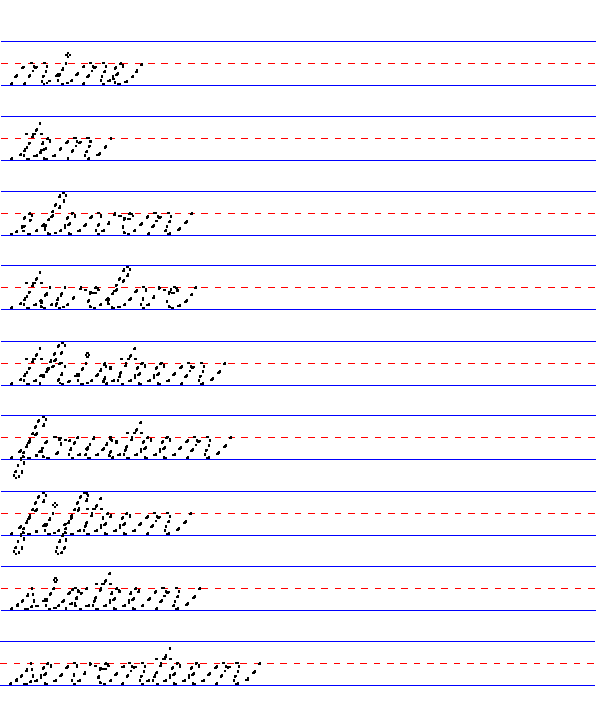 nine
ten
eleven
twelve
thirteen
fourteen
fifteen
sixteen
seventeen